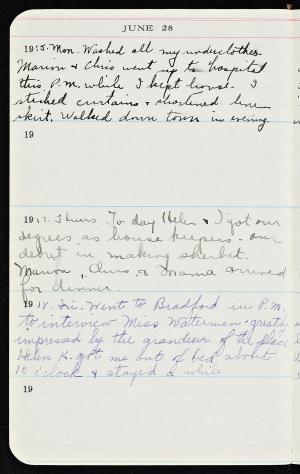 JUNE 28
1915. Mon. Washed all my underclothes.
Marion & Chris went up to hospital
this P.M. while I kept house. I
stiched curtains & shortened linen
skirt. Walked down town in evening.
19
1917. Thurs. To day Helen & I got our
degrees as house keepers. our
debut in making sherbet.
Marion, Chris, & Mama arrived
for dinner.
1918. Fri. Went to Bradford in P.M.
to interview Miss Waterman & greatly
impressed by the grandeur of the place
Helen K. got me out of bed about
10 o'clock & stayed a while.
19